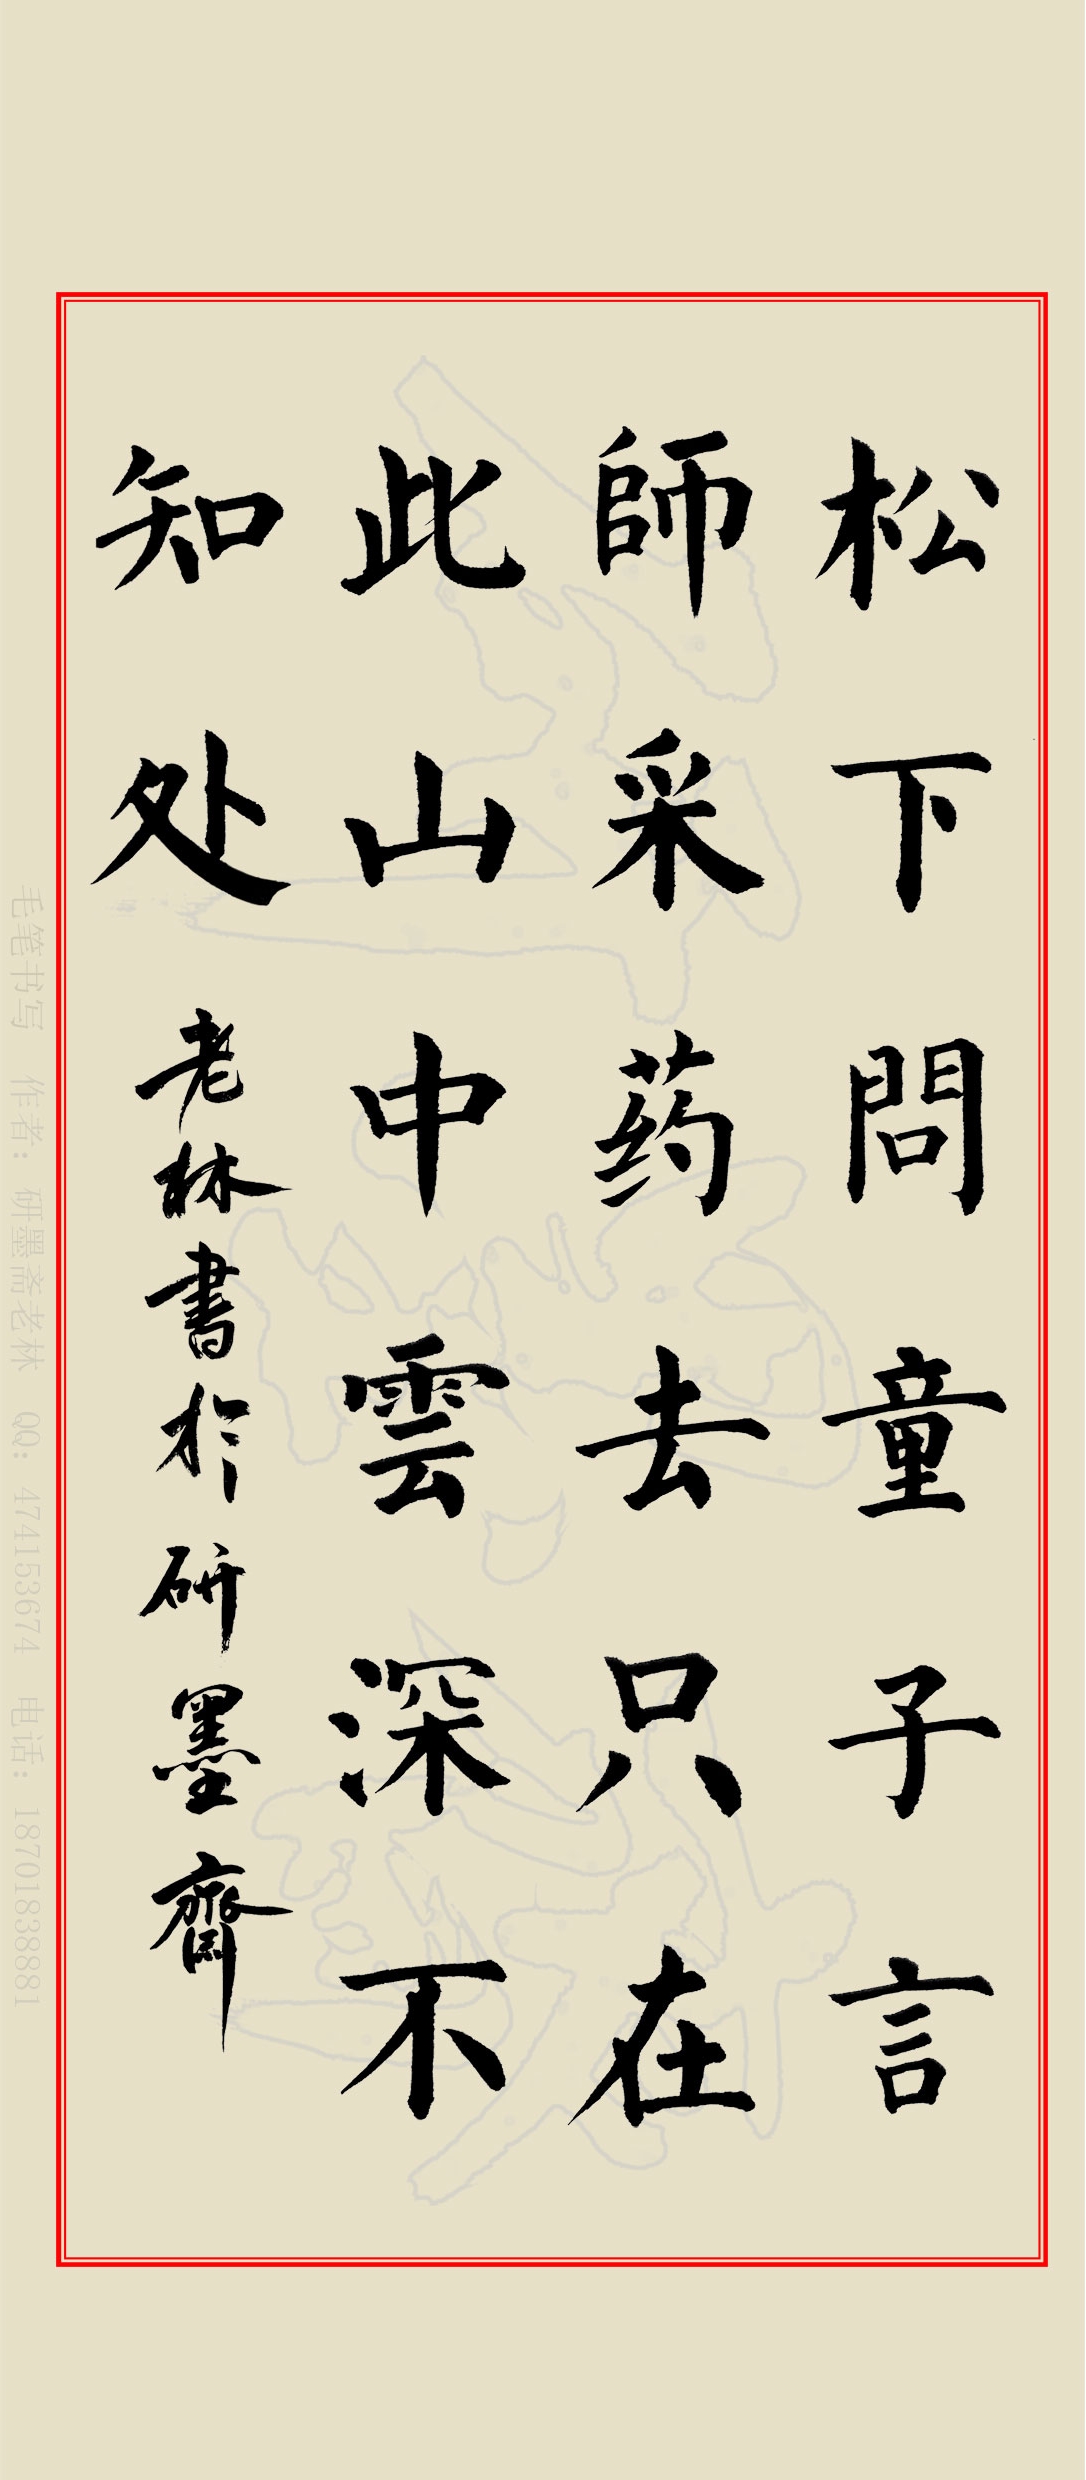 松下問童子言
師采药去只在
此山中雲深不
知处
老林書於研墨齋
毛笔书写 作者: 研墨斋老林 QQ: 47415367​4 电话: 18701838881